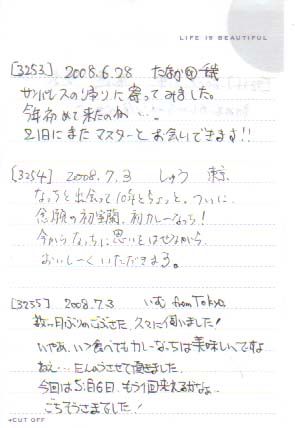 LIFE IS BEAUTIFUL
[3253] 2008.6.28 たなか
サンパレスの帰りに寄ってみました。
今年初めて来たのか…
21日にまたマスターとお会いできます!!
[3254] 2008.7.3 しゅう 東京
なっちと出会って10年とちょっと。ついに、
念願の初室蘭、初カレーなっち!
今からなっちに思いをはせながら、
おいしーくいただきまる。
[3255] 2008.7.3 いむ from Tokyo
数ヶ月ぶりのごぶさた、スマに伺いました!
いやぁ、いつ食べてもカレーなっちは美味しいですよ
ねぇ… たんのうさせて頂きました。
今回は5泊6日、もう1回来えるかなぁ、
ごちそうさまでした!
CUT OFF